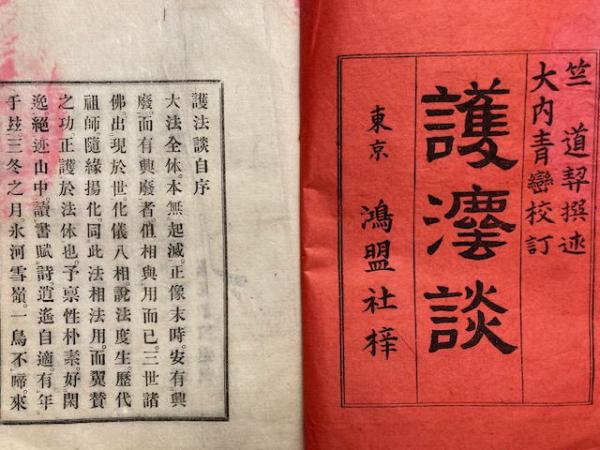 竺 道契撰述
大内青巒校訂
護灋談
東京 鴻盟社梓
護法談自序
大法全体。本無起滅。正像末時。安有興
廢。而有興廢者。但相與用而已。三世諸
佛出現於世。化儀八相。說法度生。歷代
祖師隨緣揚化。同此法相法用。而翼贊
之功正護於法体也。予稟性朴素。好閑
逸絕迹山中。讀書賦詩。逍遙自適。有年
于玆。三冬之月。氷河雪嶺。一鳥不啼。來